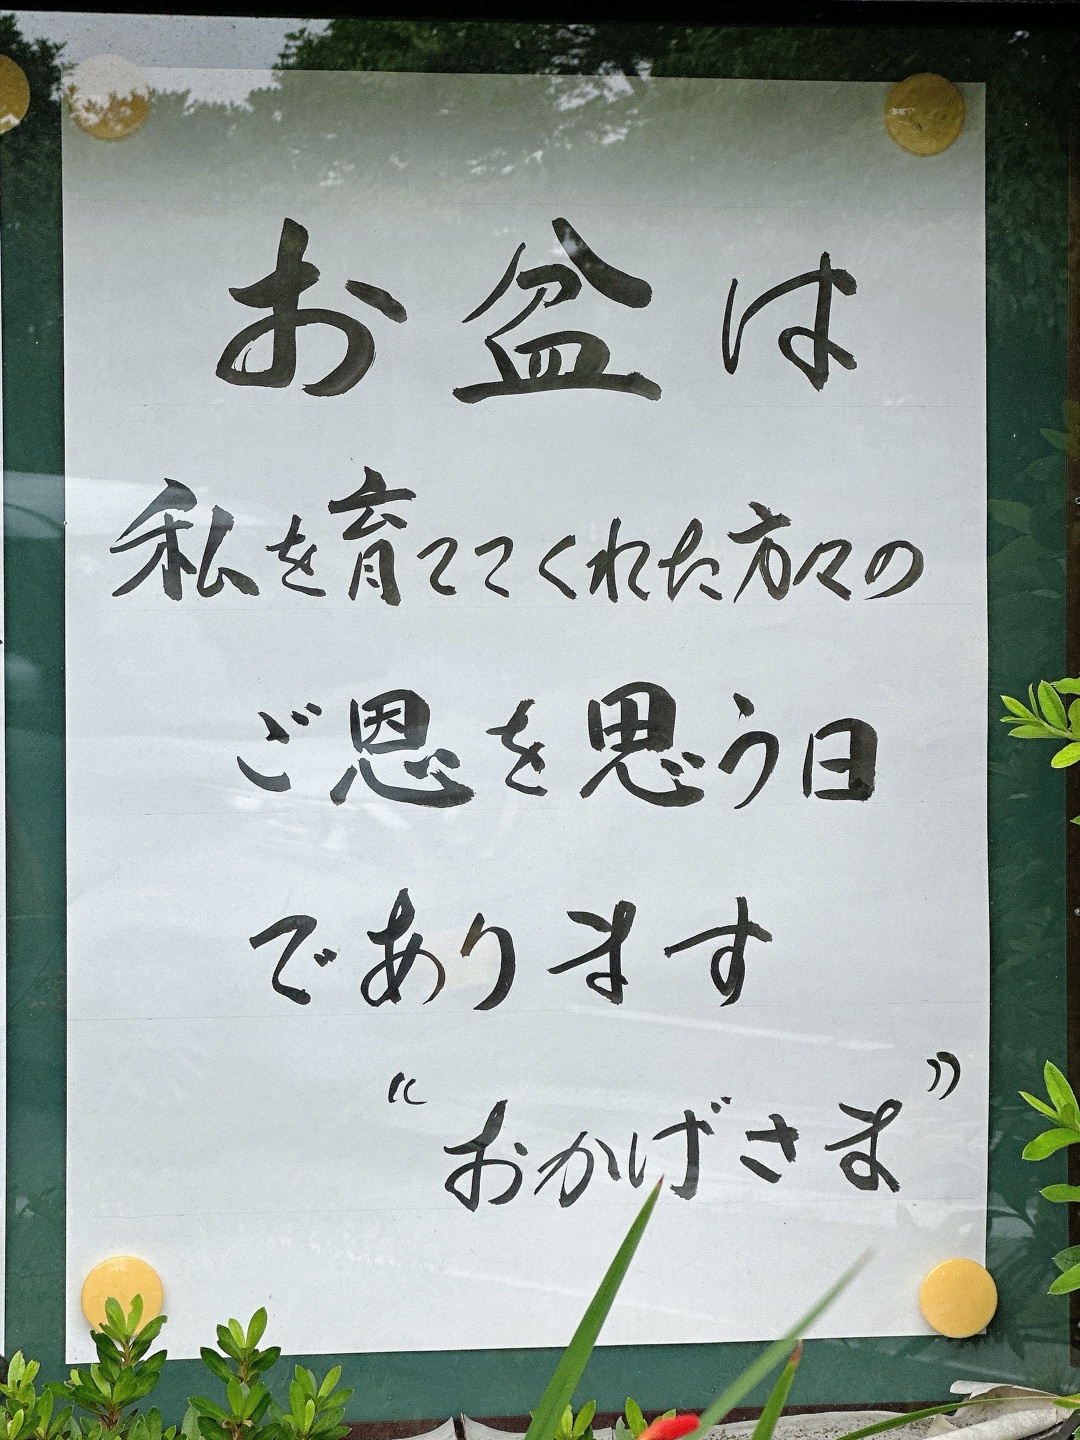 お盆は
私を育ててくれた方々の
ご恩を思う日
であります
“おかげさま”